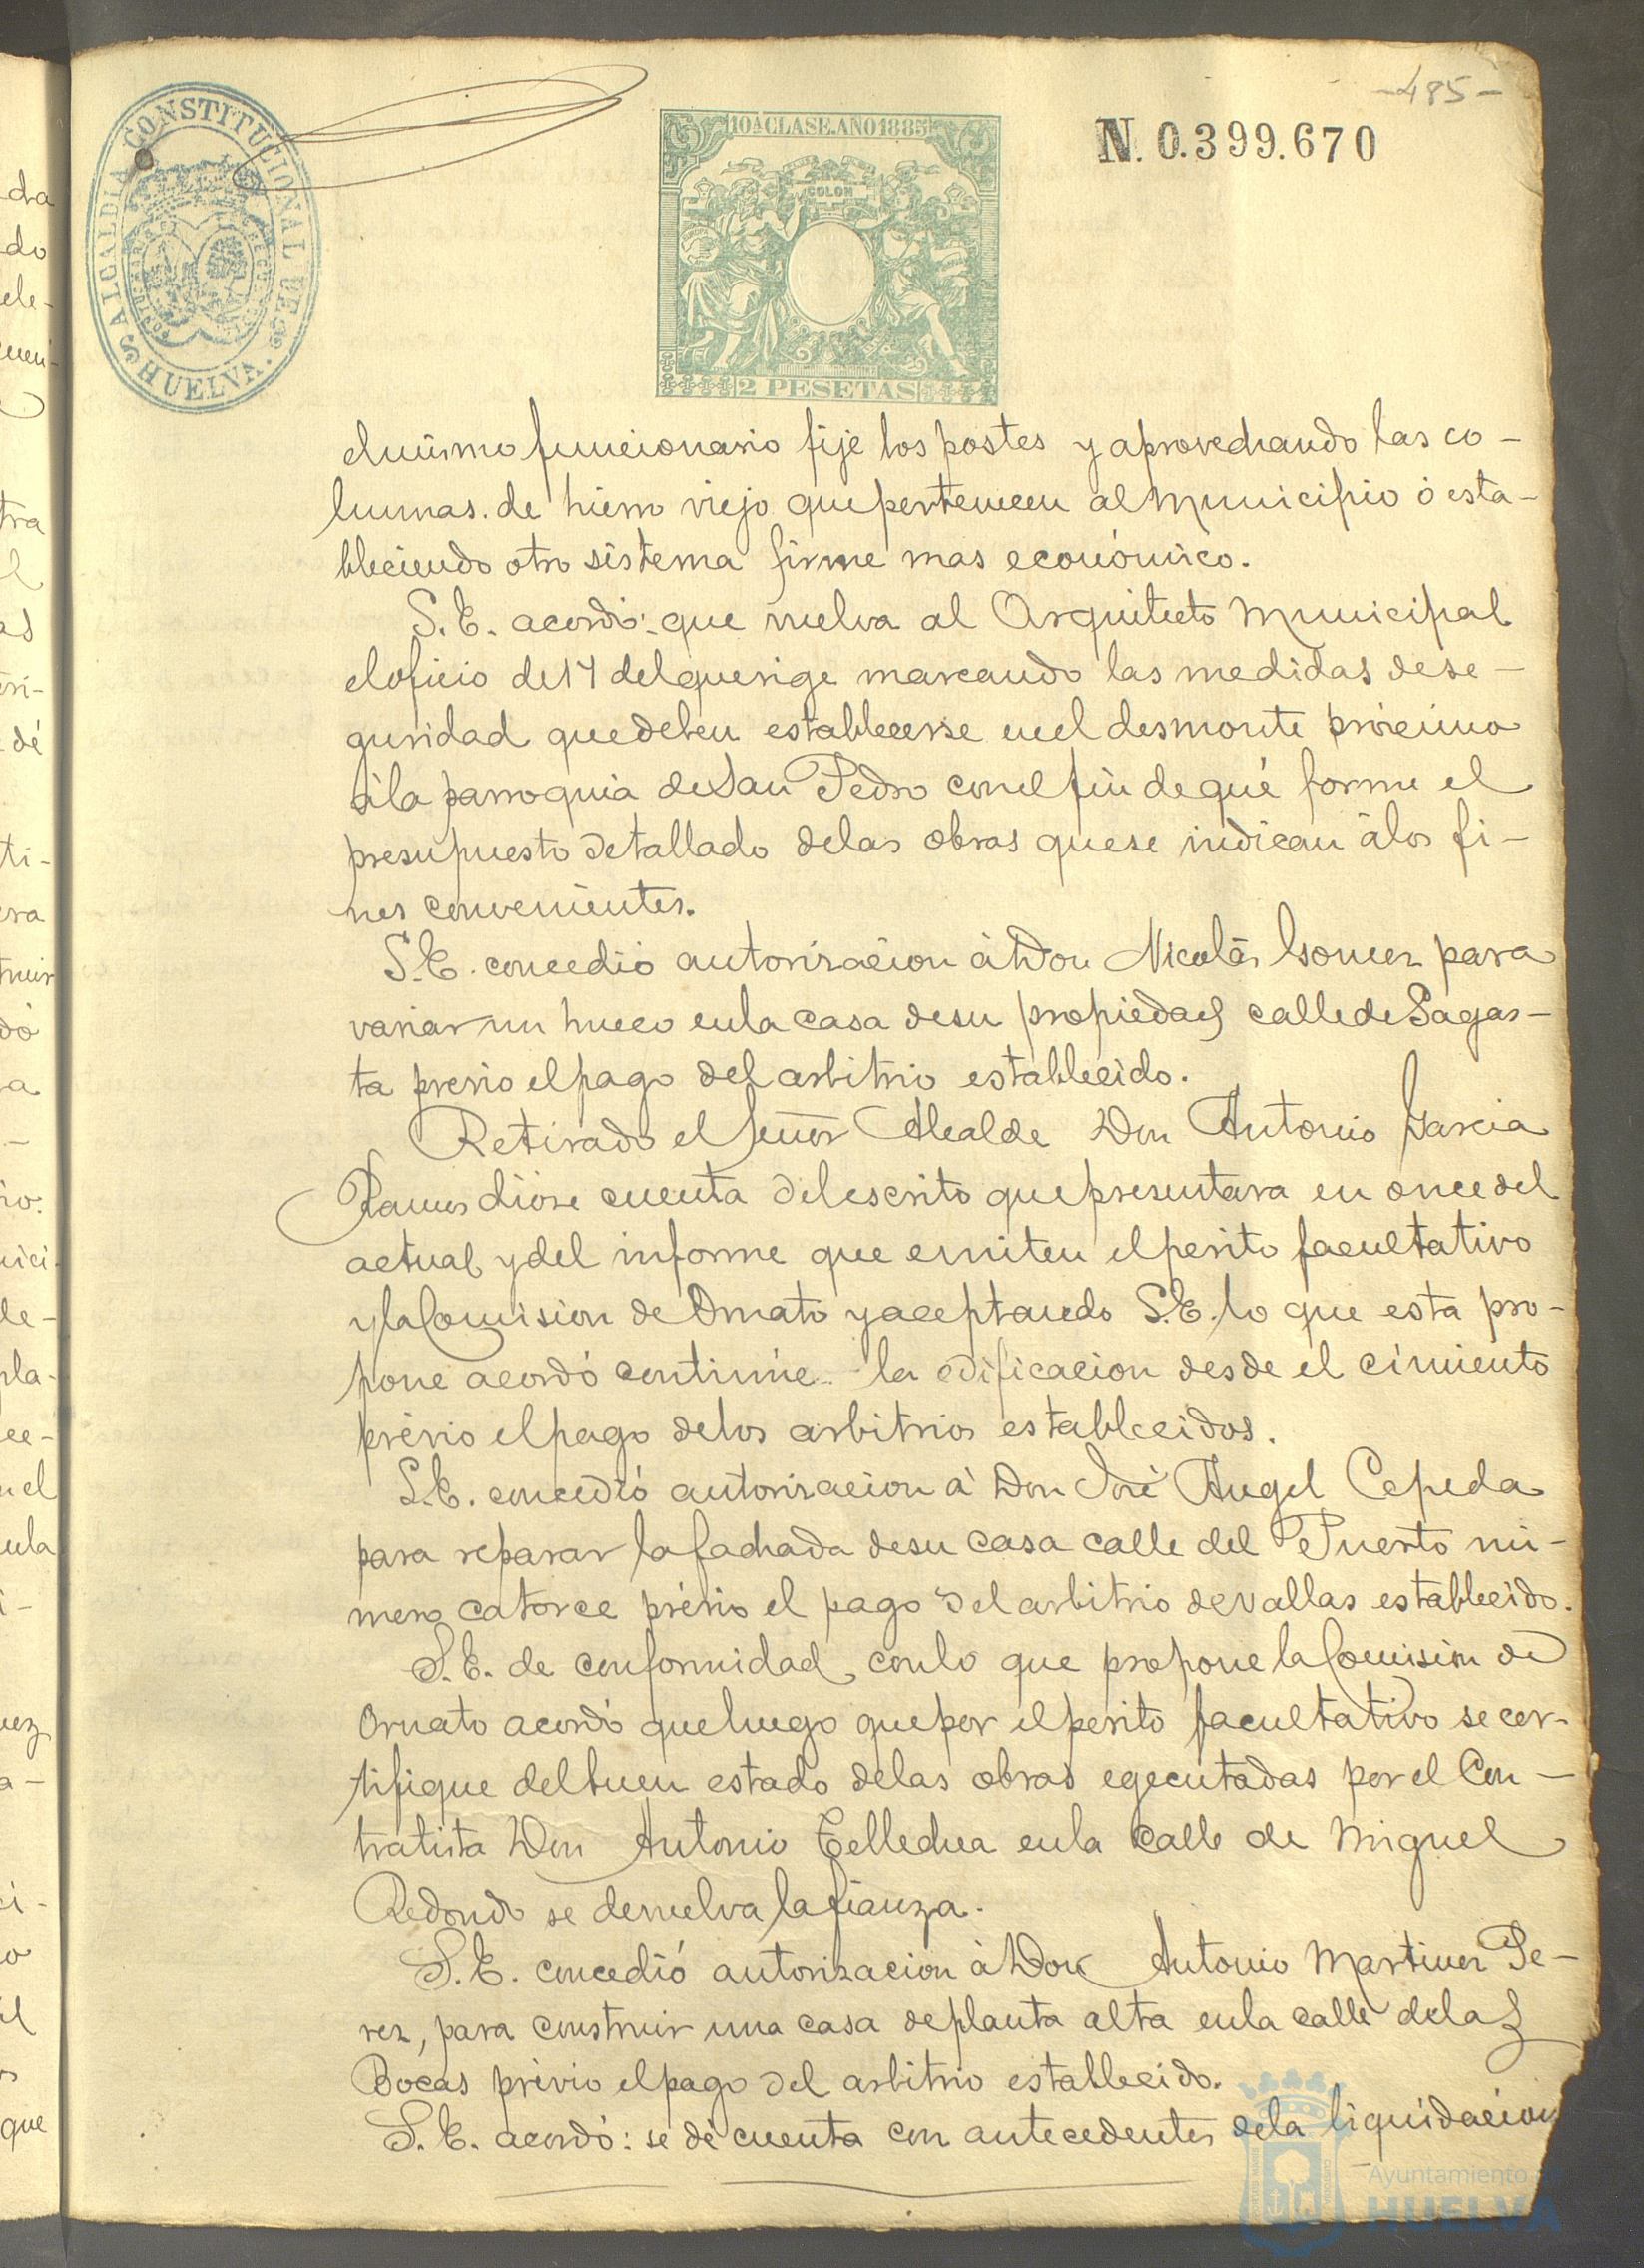 -485-
ALCALDIA CONSTITUCIONAL DE
HUELVA.
10A CLASE. AÑO 1885
N. 0.399.670
COLON
2 PESETAS
el mismo funcionario fije los postes y aprovechando las co-
lumnas de hierro viejo que pertenecen al Municipio ó esta-
bleciendo otro sistema firme mas económico.
S.E. acordó: que vuelva al Arquitecto Municipal
el oficio de 17 del que rige marcando las medidas de se-
guridad que deben establecerse en el desmonte próximo
á la parroquia de San Pedro con el fin de qué forme el
presupuesto detallado de las obras que se indican á los fi-
nes convenientes.
S.E. concedió autorizacion á Don Nicolás Gomez para
variar un hueco en la casa de su propiedad calle de Sagas-
ta previo el pago del arbitrio establecido.
Retirado el Señor Alcalde Don Antonio Garcia
Ramos dióse cuenta del escrito que presentara en once del
actual y del informe que emiten el perito facultativo
y la Comision de Ornato y aceptando S.E. lo que esta pro-
pone acordó continúe la edificacion desde el cimiento
prévio el pago de los arbitrios establecidos.
S.E. concedió autorizacion á Don José Angel Cepeda
para reparar la fachada de su casa calle del Puerto nú-
mero catorce prévio el pago del arbitrio de vallas establecido.
S.E. de conformidad con lo que propone la Comision de
Ornato acordó que luego que por el perito facultativo se cer-
tifique del buen estado de las obras egecutadas por el Con-
tratista Don Antonio Tellechea en la calle de Miguel
Redondo se devuelva la fianza.
S.E. concedió autorizacion á Don Antonio Martinez Pe-
rez, para construir una casa de planta alta en la calle de las
Bocas prévio el pago del arbitrio establecido.
S.E. acordó: se dé cuenta con antecedentes de la liquidación
Ayuntamiento de
HUELVA